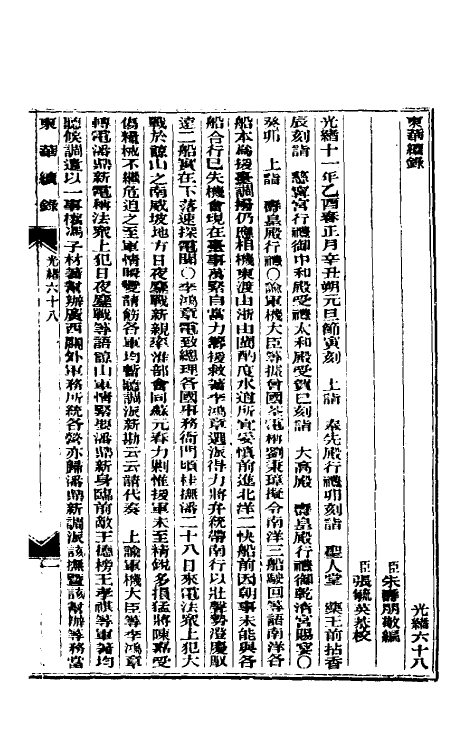 東華續錄
光緒六十八
臣朱壽朋敬編
臣張毓英恭校
光緒十一年乙酉春正月辛丑朔元旦節寅刻　上詣　奉先殿行禮卯刻詣　聖人堂　藥王前拈香
辰刻詣　慈寧宮行禮御中和殿受禮太和殿受賀巳刻詣　大高殿　壽皇殿行禮御乾清宮賜宴〇
癸卯　上詣　壽皇殿行禮〇諭軍機大臣等據曾國荃電稱劉秉璋擬令南洋三船駛回等語南洋各
船本為援臺調撥仍應相機東渡由浙由閩酌度水道所宜妥慎前進北洋二快船前因朝事未能與各
船合行已失機會現在臺事萬緊自當力籌援救著李鴻章選派得力將弁統帶南行以壯聲勢澄慶馭
遠二船實在下落速探電聞〇李鴻章電致總理各國事務衙門頃桂撫潘二十八日來電法眾上犯大
戰於諒山之南威坡地方日夜鏖戰新親率淮部會同蘇元春力剿惟援軍未至精銳多損猛將陳嘉受
傷糧械不繼危迫之至軍情瞬變請飭各軍均暫聽調派新勘云云請代奏　上諭軍機大臣等李鴻章
轉電潘鼎新電稱法眾上犯日夜鏖戰等語諒山軍情緊要潘鼎新身臨前敵王德榜王孝祺等軍著均
聽候調遣以一事權馮子材著幫辦廣西關外軍務所統各營亦歸潘鼎新調派該撫暨該幫辦等務當
東華續錄
光緒六十八
一